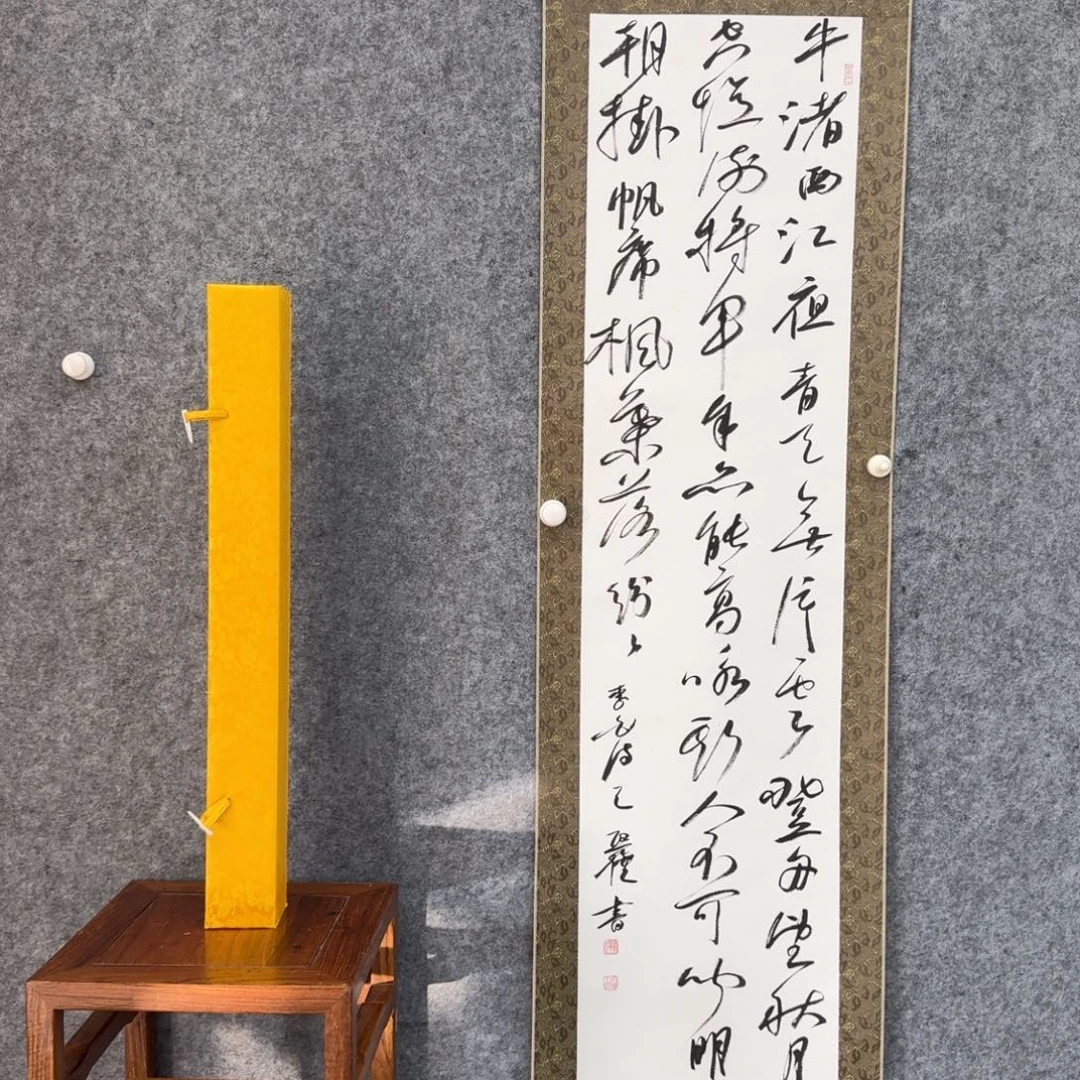 牛渚西江夜青天無片雲登舟望秋月
空憶謝將軍余亦能高詠斯人不可聞明
朝掛帆席楓葉落紛々李白詩書